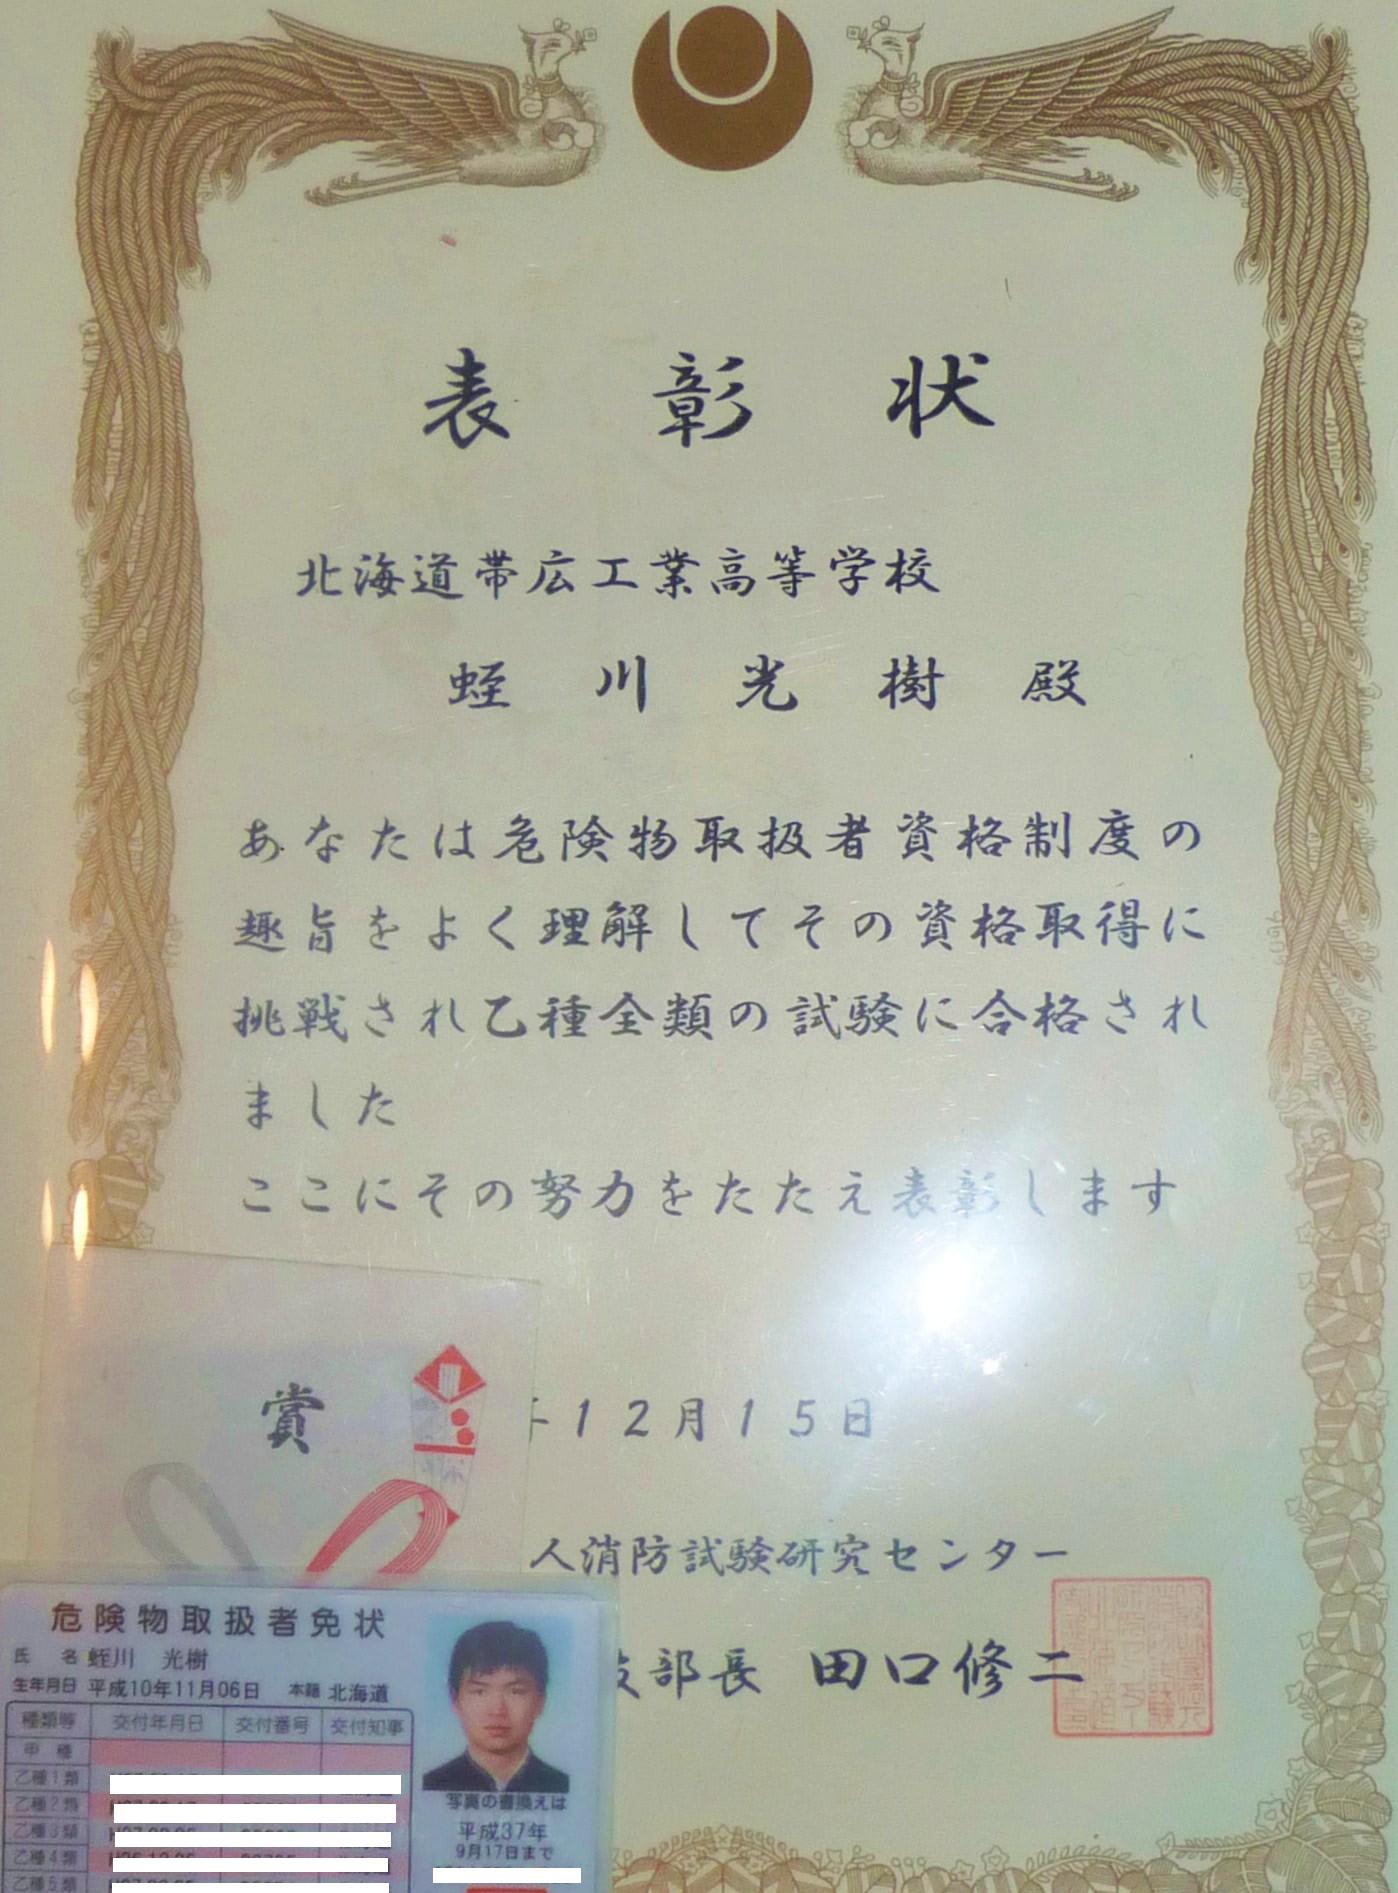 表彰状
北海道帯広工業高等学校
蛭川光樹殿
あなたは危険物取扱者資格制度の
趣旨をよく理解してその資格取得に
挑戦され乙種全類の試験に合格され
ました
ここにその努力をたたえ表彰します
賞
12月15日
人消防試験研究センター
部長 田口修二
危険物取扱者免状
氏名 蛭川 光樹
生年月日 平成10年11月06日 本籍 北海道
種類等 交付年月日 交付番号 交付知事
甲種
乙種1類
乙種2類
乙種3類
乙種4類
乙種5類
写真の書換えは
平成37年
9月17日まで